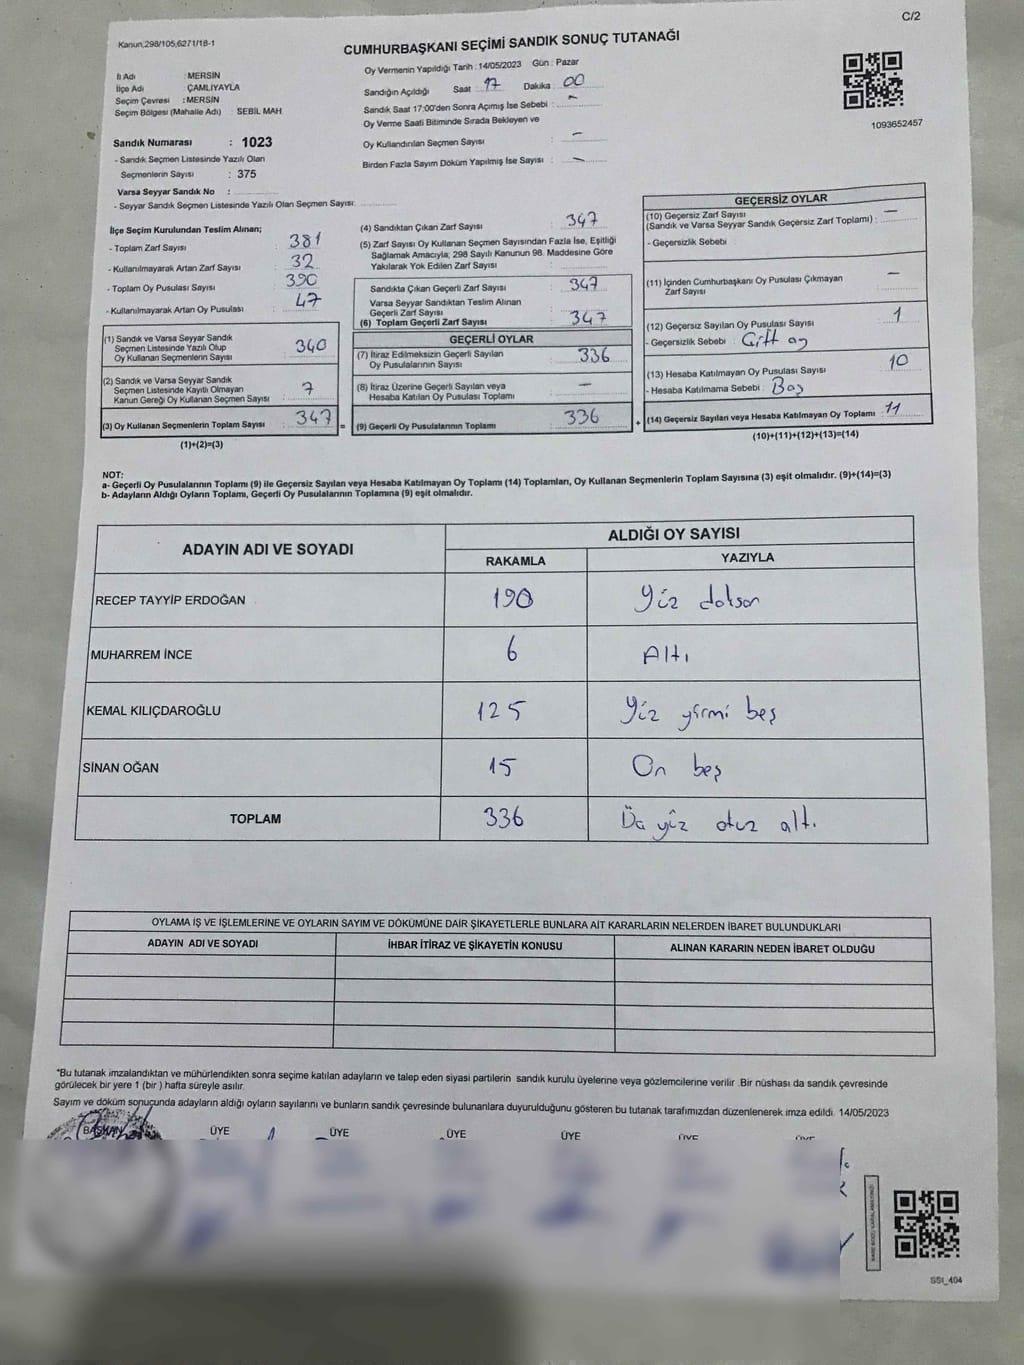 C/2
Kanun,298/105,6271/18-1
CUMHURBAŞKANI SEÇİMİ SANDIK SONUÇ TUTANAĞI
İl Adı : MERSİN
İlçe Adı ÇAMLIYAYLA
Seçim Çevresi : MERSİN
Seçim Bölgesi (Mahalle Adı) : SEBİL MAH
Sandık Numarası : 1023
- Sandık Seçmen Listesinde Yazılı Olan
Seçmenlerin Sayısı : 375
Varsa Seyyar Sandık No :
- Seyyar Sandık Seçmen Listesinde Yazılı Olan Seçmen Sayısı:
Oy Vermenin Yapıldığı Tarih : 14/05/2023 Gün : Pazar
Sandığın Açıldığı Saat : 17 Dakika : 00
Sandık Saat 17:00'den Sonra Açımış İse Sebebi : -
Oy Verme Saati Bitiminde Sırada Bekleyen ve
Oy Kullandırılan Seçmen Sayısı : -
Birden Fazla Sayım Döküm Yapılmış İse Sayısı : -
1093652457
İlçe Seçim Kurulundan Teslim Alınan;
- Toplam Zarf Sayısı : 381
- Kullanılmayarak Artan Zarf Sayısı : 32
- Toplam Oy Pusulası Sayısı : 390
- Kullanılmayarak Artan Oy Pusulası : 47
(1) Sandık ve Varsa Seyyar Sandık
Seçmen Listesinde Yazılı Olup
Oy Kullanan Seçmenlerin Sayısı : 340
(2) Sandık ve Varsa Seyyar Sandık
Seçmen Listesinde Kayıtlı Olmayan
Kanun Gereği Oy Kullanan Seçmen Sayısı : 7
(3) Oy Kullanan Seçmenlerin Toplam Sayısı : 347 =
(1)+(2)=(3)
(4) Sandıktan Çıkan Zarf Sayısı : 347
(5) Zarf Sayısı Oy Kullanan Seçmen Sayısından Fazla İse, Eşitliği
Sağlamak Amacıyla; 298 Sayılı Kanunun 98. Maddesine Göre
Yakılarak Yok Edilen Zarf Sayısı :
Sandıkta Çıkan Geçerli Zarf Sayısı : 347
Varsa Seyyar Sandıktan Teslim Alınan
Geçerli Zarf Sayısı :
(6) Toplam Geçerli Zarf Sayısı : 347
GEÇERLİ OYLAR
(7) İtiraz Edilmeksizin Geçerli Sayılan
Oy Pusulalarının Sayısı : 336
(8) İtiraz Üzerine Geçerli Sayılan veya
Hesaba Katılan Oy Pusulası Toplamı : -
(9) Geçerli Oy Pusulalarının Toplamı : 336 +
GEÇERSİZ OYLAR
(10) Geçersiz Zarf Sayısı
(Sandık ve Varsa Seyyar Sandık Geçersiz Zarf Toplamı) : -
- Geçersizlik Sebebi :
(11) İçinden Cumhurbaşkanı Oy Pusulası Çıkmayan
Zarf Sayısı : -
(12) Geçersiz Sayılan Oy Pusulası Sayısı : 1
- Geçersizlik Sebebi : Çift oy
(13) Hesaba Katılmayan Oy Pusulası Sayısı : 10
- Hesaba Katılmama Sebebi : Boş
(14) Geçersiz Sayılan veya Hesaba Katılmayan Oy Toplamı : 11
(10)+(11)+(12)+(13)=(14)
NOT:
a- Geçerli Oy Pusulalarının Toplamı (9) ile Geçersiz Sayılan veya Hesaba Katılmayan Oy Toplamı (14) Toplamları, Oy Kullanan Seçmenlerin Toplam Sayısına (3) eşit olmalıdır. (9)+(14)=(3)
b- Adayların Aldığı Oyların Toplamı, Geçerli Oy Pusulalarının Toplamına (9) eşit olmalıdır.
ADAYIN ADI VE SOYADI ALDIĞI OY SAYISI
RAKAMLA YAZIYLA
RECEP TAYYİP ERDOĞAN 190 Yüz doksan
MUHARREM İNCE 6 Altı
KEMAL KILIÇDAROĞLU 125 Yüz yirmi beş
SİNAN OĞAN 15 On beş
TOPLAM 336 Üç yüz otuz altı
OYLAMA İŞ VE İŞLEMLERİNE VE OYLARIN SAYIM VE DÖKÜMÜNE DAİR ŞİKAYETLERLE BUNLARA AİT KARARLARIN NELERDEN İBARET BULUNDUKLARI
ADAYIN ADI VE SOYADI İHBAR İTİRAZ VE ŞİKAYETİN KONUSU ALINAN KARARIN NEDEN İBARET OLDUĞU
*Bu tutanak imzalandıktan ve mühürlendikten sonra seçime katılan adayların ve talep eden siyasi partilerin sandık kurulu üyelerine veya gözlemcilerine verilir .Bir nüshası da sandık çevresinde
görülecek bir yere 1 (bir ) hafta süreyle asılır.
Sayım ve döküm sonucunda adayların aldığı oyların sayılarını ve bunların sandık çevresinde bulunanlara duyurulduğunu gösteren bu tutanak tarafımızdan düzenlenerek imza edildi. 14/05/2023
BAŞKAN ÜYE ÜYE ÜYE ÜYE ÜYE ÜYE
SSI_404